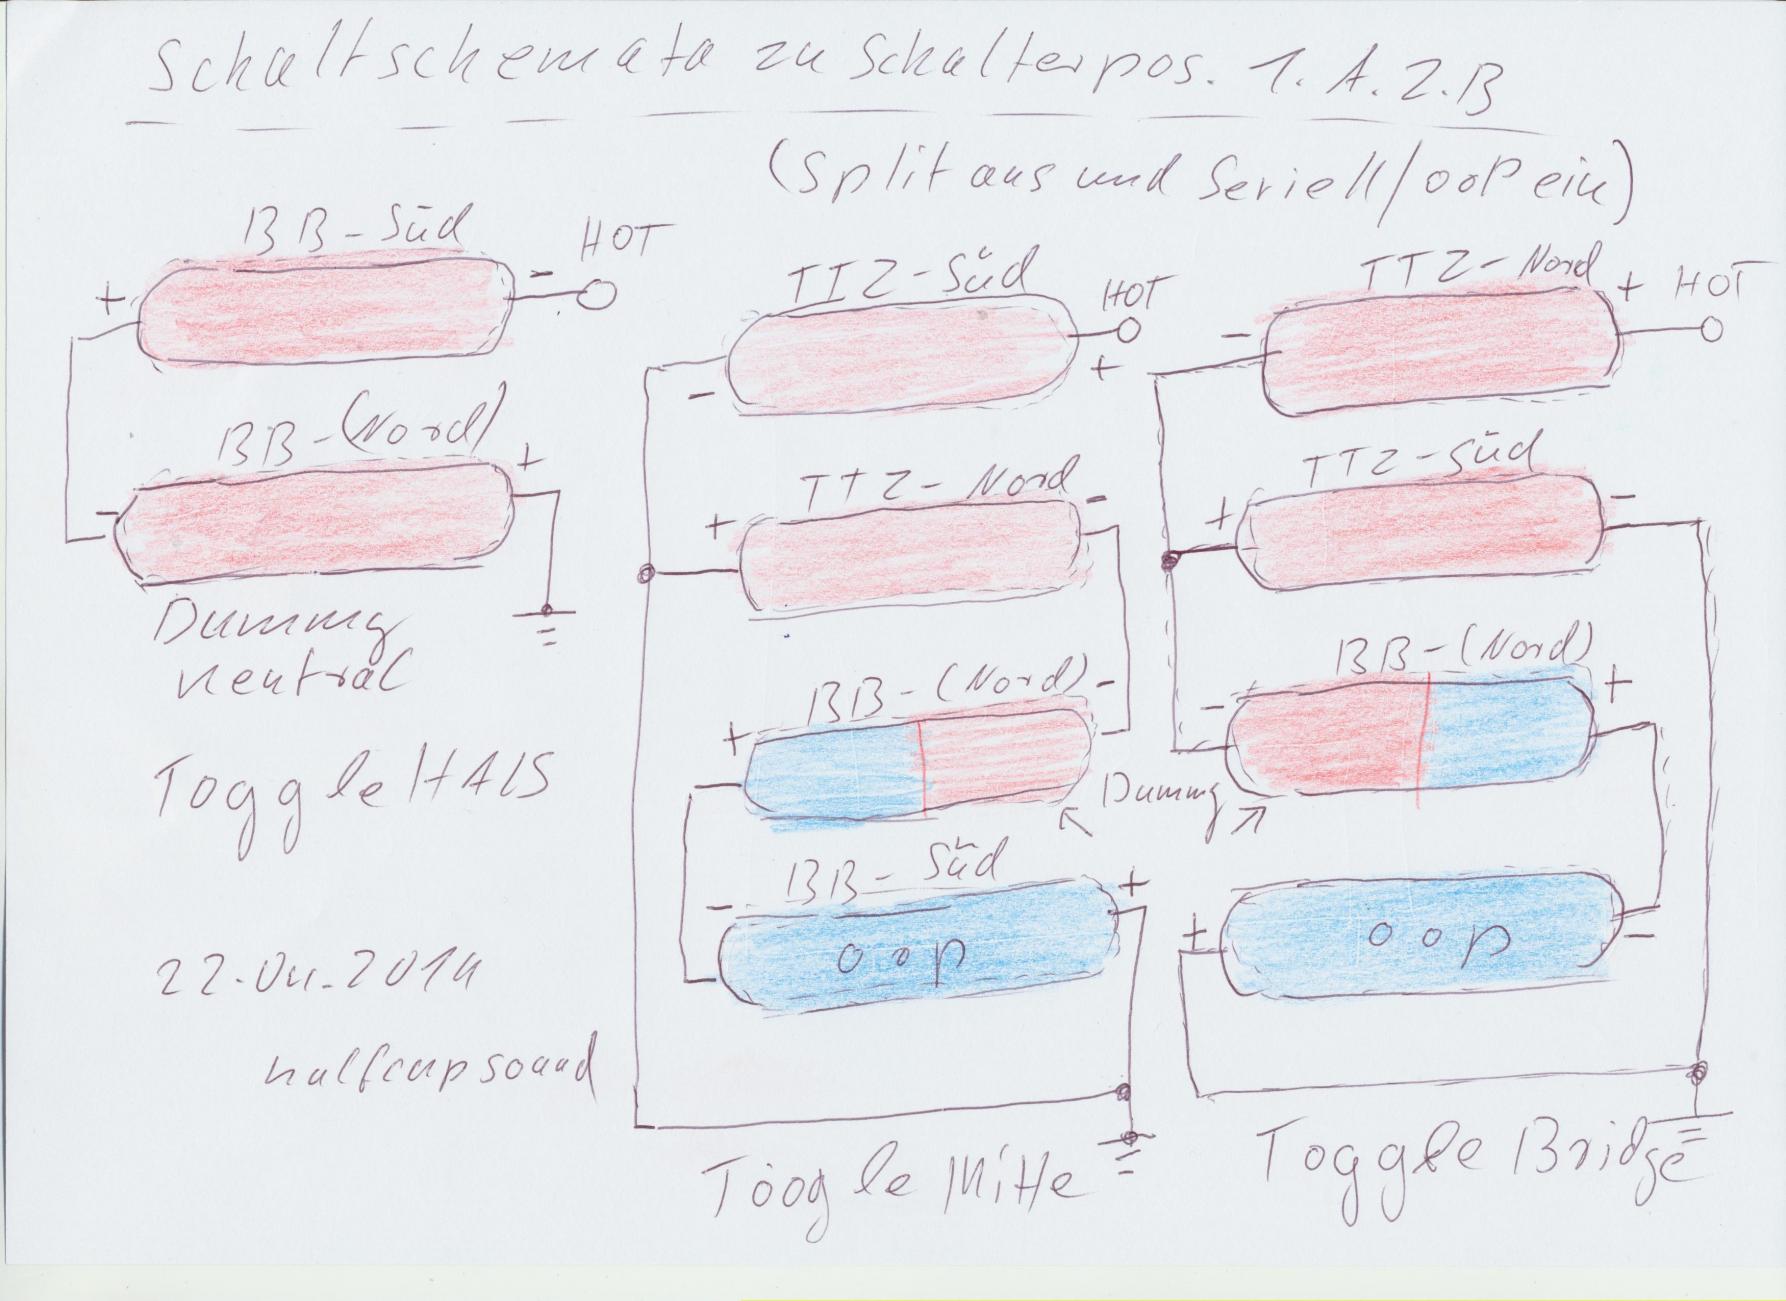 Schaltschemata zu Schalterpos. 1.A.2.B
(Split aus und Seriell/ooP ein)
BB-Süd
HOT
+
-
BB-(Nord)
-
+
Dummy
neutral
Toggle HALS
22.04.2014
halfcapsound
TTZ-Süd
HOT
-
+
TTZ-Nord
+
-
BB-(Nord)
+
-
Dummy
BB-Süd
-
+
oop
Toogle Mitte
TTZ-Nord
+
HOT
-
TTZ-Süd
+
-
BB-(Nord)
-
+
+
oop
-
Toggle Bridge